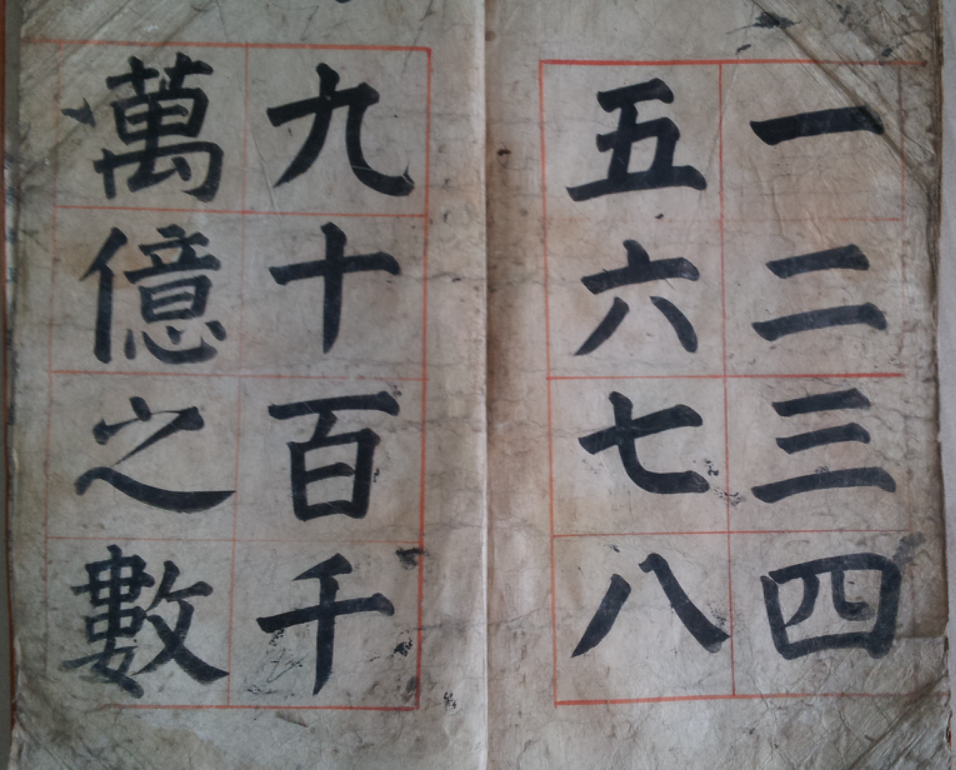 一二三四
五六七八
九十百千
萬億之數